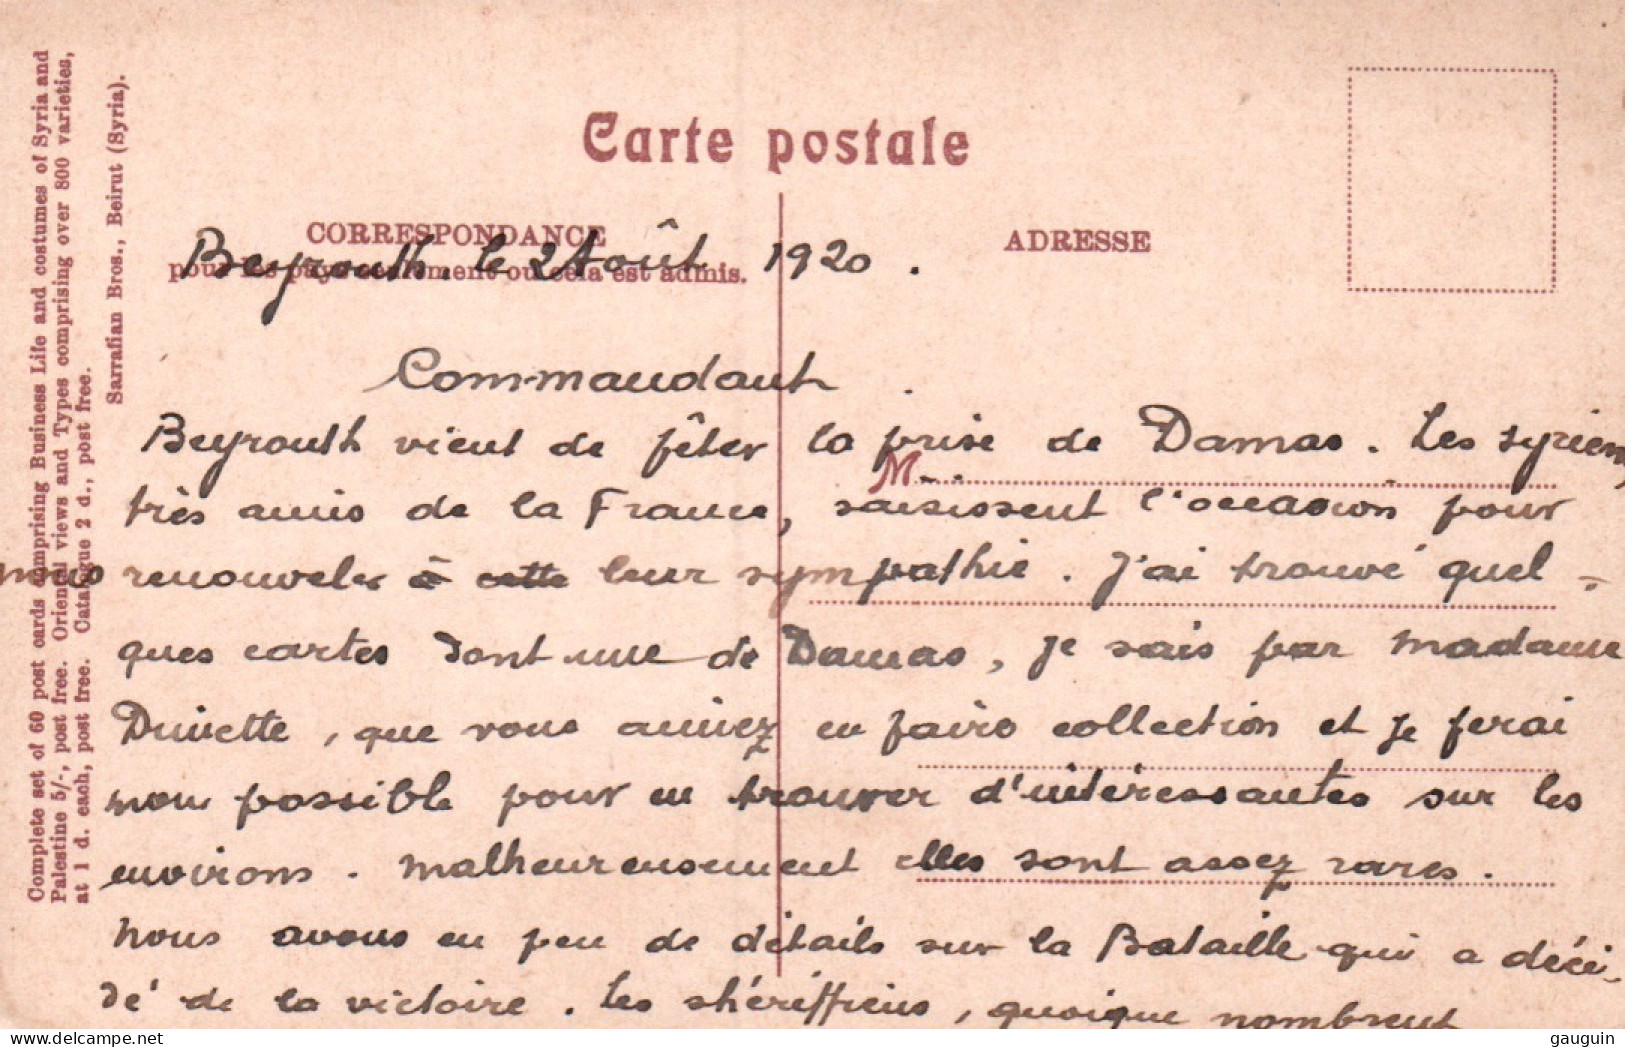 Complete set of 60 post cards comprising Business Life and costumes of Syria and
Palestine 5/-, post free. Oriental views and Types comprising over 800 varieties,
at 1 d. each, post free. Catalogue 2 d., post free.
Sarrafian Bros., Beirut (Syria).
Carte postale
CORRESPONDANCE
pour les pays seulement ou cela est admis.
ADRESSE
Beyrouth. le 2 Août 1920.
Commandant
Beyrouth vient de fêter la prise de Damas. Les syriens,
M
très amis de la France, saisissent l'occasion pour
nous renouveler à cette leur sympathie. J'ai trouvé quel-
ques cartes dont une de Damas, je sais par madame
que vous aimez en faire collection et je ferai
mon possible pour en trouver d'intéressantes sur les
environs. Malheureusement elles sont assez rares.
Nous avons eu peu de détails sur la Bataille qui a déci-
dé de la victoire. Les shériffiens, quoique nombreux
gauguin